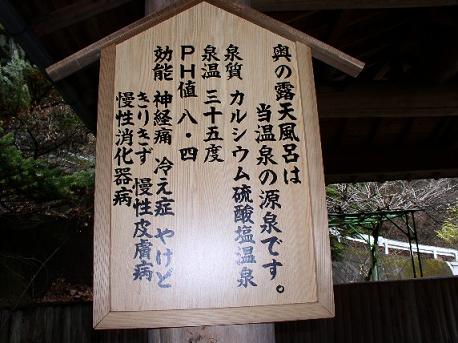 奥の露天風呂は
当温泉の源泉です。
泉質 カルシウム硫酸塩温泉
泉温 三十五度
PH値 八・四
効能 神経痛 冷え症 やけど
きりきず 慢性皮膚病
慢性消化器病